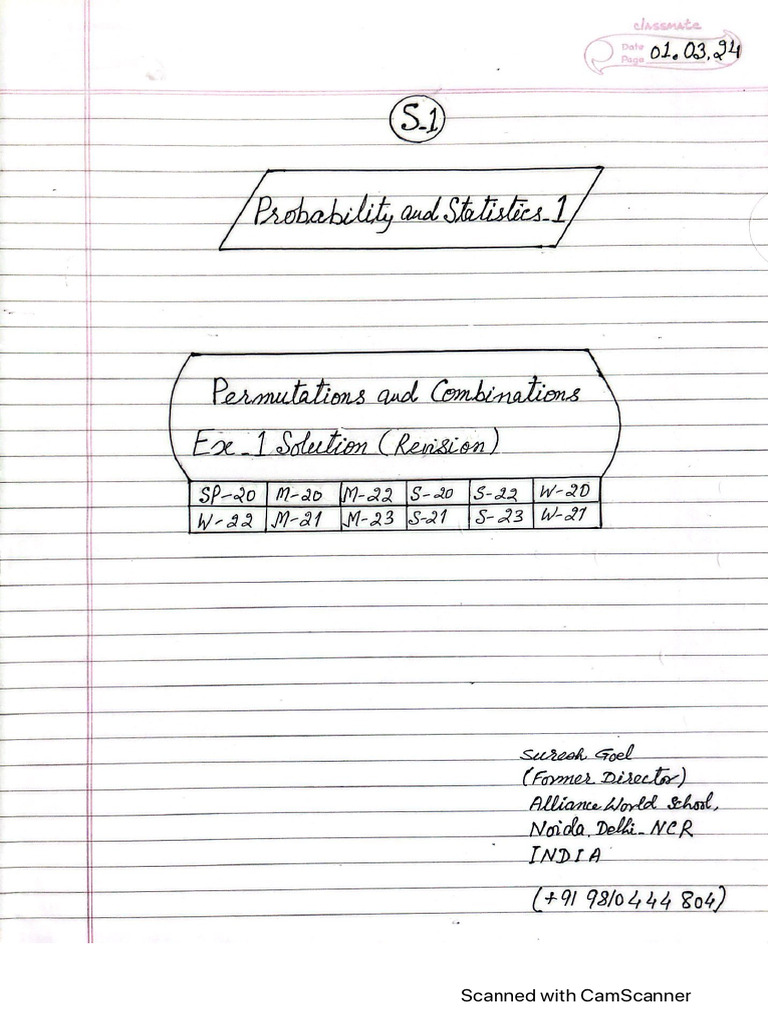 classmate
Date 01.03.24
Page
S-1
Probability and Statistics-1
Permutations and Combinations
Ex-1 Solution (Revision)
SP-20 M-20 M-22 S-20 S-22 W-20
W-22 M-21 M-23 S-21 S-23 W-21
Suresh Goel
(Former Director)
Alliance World School,
Noida, Delhi-NCR
INDIA
(+91 9810444 804)
Scanned with CamScanner